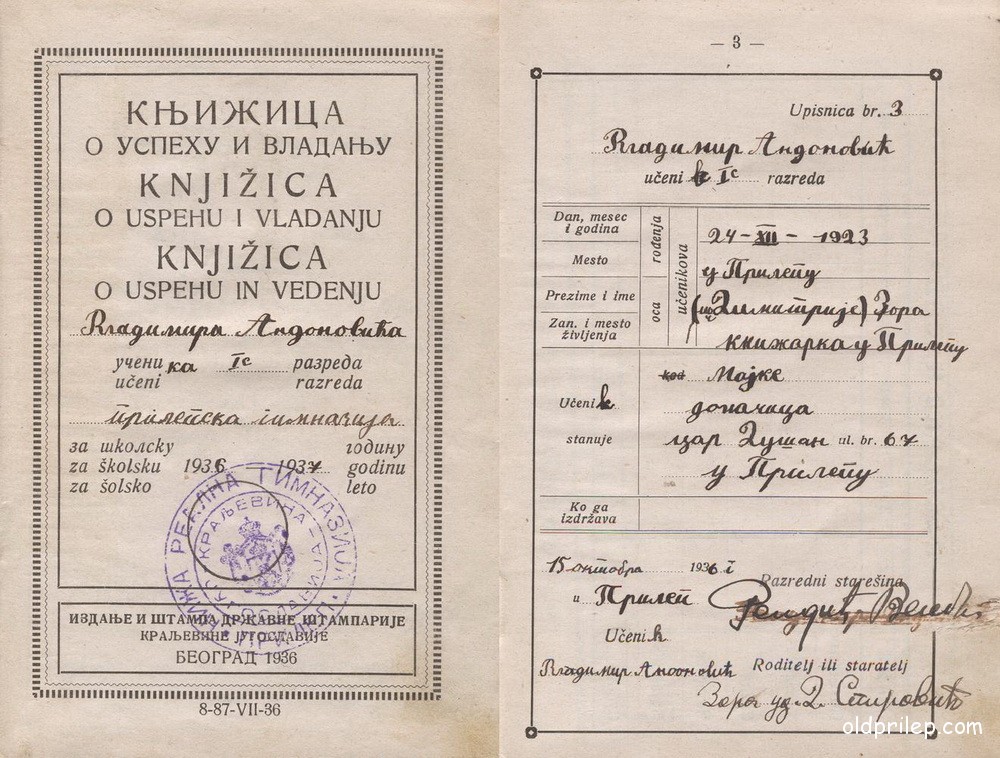 КЊИЖИЦА
О УСПЕХУ И ВЛАДАЊУ
KNJIŽICA
O USPEHU I VLADANJU
KNJIŽICA
O USPEHU IN VEDENJU
Владимира Андоновића
учени ка Iс разреда
učeni razreda
прилепска гимназија
за школску годину
za školsku 1936 1937 godinu
za šolsko leto
РЕАЛНА ГИМНАЗИЈА
КРАЉЕВИНА
ИЗДАЊЕ И ШТАМПА ДРЖАВНЕ ШТАМПАРИЈЕ
КРАЉЕВИНЕ ЈУГОСЛАВИЈЕ
БЕОГРАД 1936
8-87-VII-36
— 3 —
Upisnica br. 3
Владимир Андоновић
učeni k Iс razreda
Dan, mesec i godina
rođenja
24-XII-1923
Mesto
učenikova
у Прилепу
Prezime i ime
oca
Димитрије) Зора
Zan. i mesto življenja
књижарка у Прилепу
kod Мајке
Učeni k
домаћица
stanuje
цар Душан ul. br. 67
у Прилепу
Ko ga izdržava
15 октобра 1936
и Прилеп
Razredni starešina
Učeni k
Владимир Андоновић
Roditelj ili staratelj
Зора уд. Д.
oldprilep.com